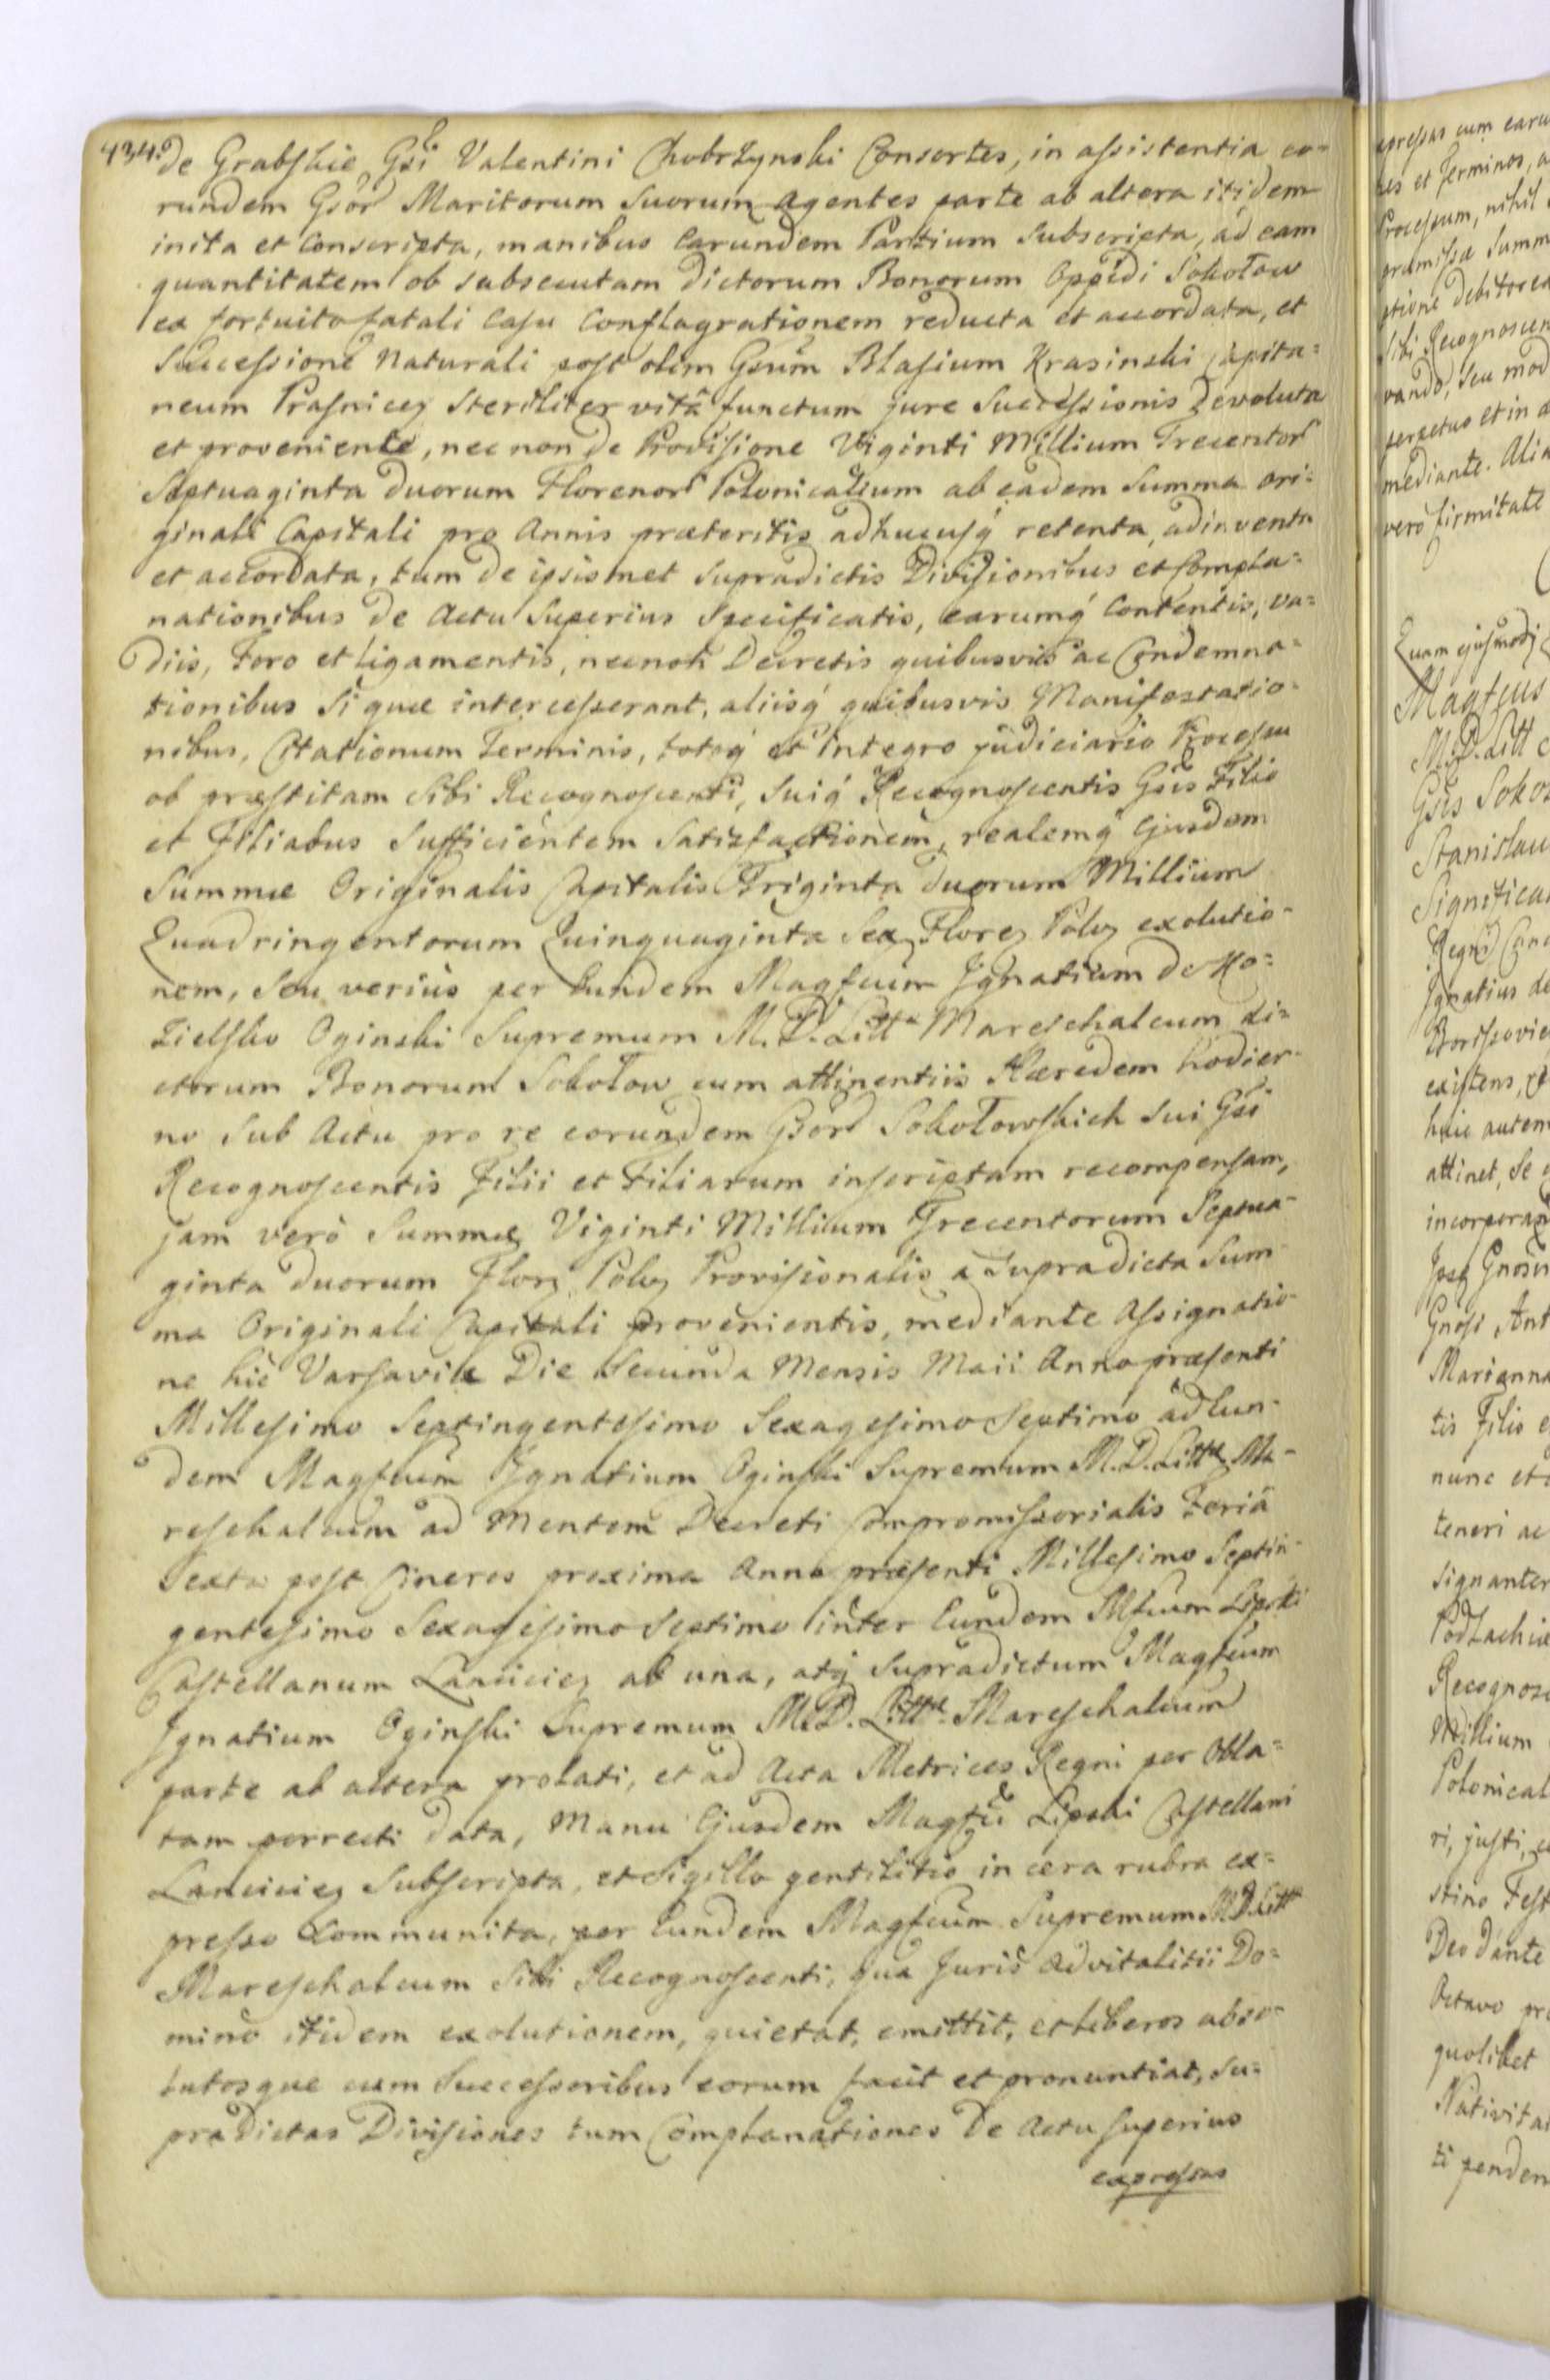 434. de Grabskie, Gsi Valentini Chobrzynski Consortes, in assistentia eo=
rundem Gsor Maritorum Suorum agentes parte ab altera itidem
inita et Conscripta, manibus Earundem Partium Subscripta, ad eam
quantitatem ob subsecutam dictorum Bonorum Oppidi Sokołow
ex fortuito fatali Casu Conflagrationem reducta et accordata, et
Successione Naturali post olim Gsum Blasium Krasinski Capita=
neum Prasnicen Steriliter vitâ functum jure Successionis devoluta
et proveniente, nec non de Provisione Viginti Millium Trecentor
Septuaginta duorum Florenor Polonicalium ab eadem Summa ori=
ginali Capitali pro Annis praeteritis adhucusq retenta, adinventa
et accordata, tum de ipsismet supradictis Divisionibus et Compla=
nationibus de Actu Superius Specificatis, earumq Contentis, va=
diis, foro et ligamentis, necnon Decretis quibusvis ac Condemna=
tionibus si quae intercesserant, aliisq quibusvis Manifestatio=
nibus, Citationum Terminis, totoq et integro judiciario Processu
ob praestitam Sibi Recognoscenti, Suiq Recognoscentis Gsis Filio
et Filiabus Sufficientem Satisfactionem, realemq Ejusdem
Summae Originalis Capitalis Triginta duorum Millium
Quadringentorum Quinquaginta Sex Floren Polon exolutio=
nem, seu verius per Eundem Magfcum Ignatium de Ko=
zielsko Oginski Supremum M. D. Littae Mareschalcum di=
ctorum Bonorum Sokołow cum attinentiis Haeredem hodier=
no Sub Actu pro re eorundem Gsor Sokołowskich sui Gsi
Recognoscentis Filii et Filiarum inscriptam recompensam,
jam verò Summae Viginti Millium Trecentorum Septua=
ginta duorum Floren Polon Provisionalis a Supradicta Sum=
ma Originali Capitali provenientis, mediante Assignatio=
ne hic Varsaviae Die Secunda Mensis Maii Anno praesenti
Millesimo Septingentesimo Sexagesimo Septimo ad Eun=
dem Magfcum Ignatium Oginski Supremum M. D. Littae Ma=
reschalcum ad Mentem Decreti Compromissorialis Feriâ
Sexta post Cineres proxima Anno praesenti Millesimo Septin=
gentesimo Sexagesimo Septimo inter Eundem Mfcum Lipski
Castellanum Lancicien ab una, atq Supradictum Magfcum
Ignatium Oginski Supremum M. D. Littae Mareschalcum
parte ab altera prolati, et ad Acta Metrices Regni per Obla=
tam porrecti data, Manu Ejusdem Magfci Lipski Castellani
Lancicien Subscripta, et Sigillo gentilitio in cera rubra ex=
presso Communita, per Eundem Magfcum Supremum M.D.Litt
Mareschalcum Sibi Recognoscenti, qua Juris Advitalitii Do=
mino itidem exolutionem, quietat, emittit, et liberos abso=
lutosque cum Successoribus eorum facit et pronuntiat, su=
pradictas Divisiones tum Complanationes de Actu Superius
expressas
expressas cum earu
tes et Terminos, a
Processum, nihil
praemissa Summ
ptione debitorea
Sibi Recognoscen
vando, seu mod
perpetuo et in a
mediante. Alia
vero firmitate
Quam ejusmodi
Magfcus
M. D. Litt
Gsis Soko
Stanislau
Significa
Regni Canc
Ignatius de
Borissovie
existens,
huic autem
attinet, se
incorporan
Gnosi Ant
Marianna
tis Filio e
nunc et
teneri ac
signanter
Podlachiae
Recognos
Millium
Polonical
ri, justi,
stino Fest
Deo dante
Octavo pr
quolibet
Nativita
ti penden